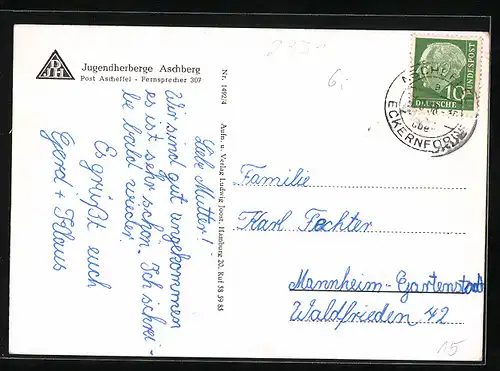 DJH
Jugendherberge Aschberg
Post Ascheffel · Fernsprecher 307
Liebe Mutter!
Wir sind gut angekommen
es ist sehr schön. Ich schrei-
be bald wieder.
Es grüßt euch
Gerd + Klaus
Nr. 14924
Aufn. u. Verlag Ludwig Joost, Hamburg 20, Ruf 58 59 85
6,
10
DEUTSCHE
BUNDESPOST
ECKERNFÖRDE
Familie
Karl Fechter
Mannheim-Gartenstadt
Waldfrieden 42
15